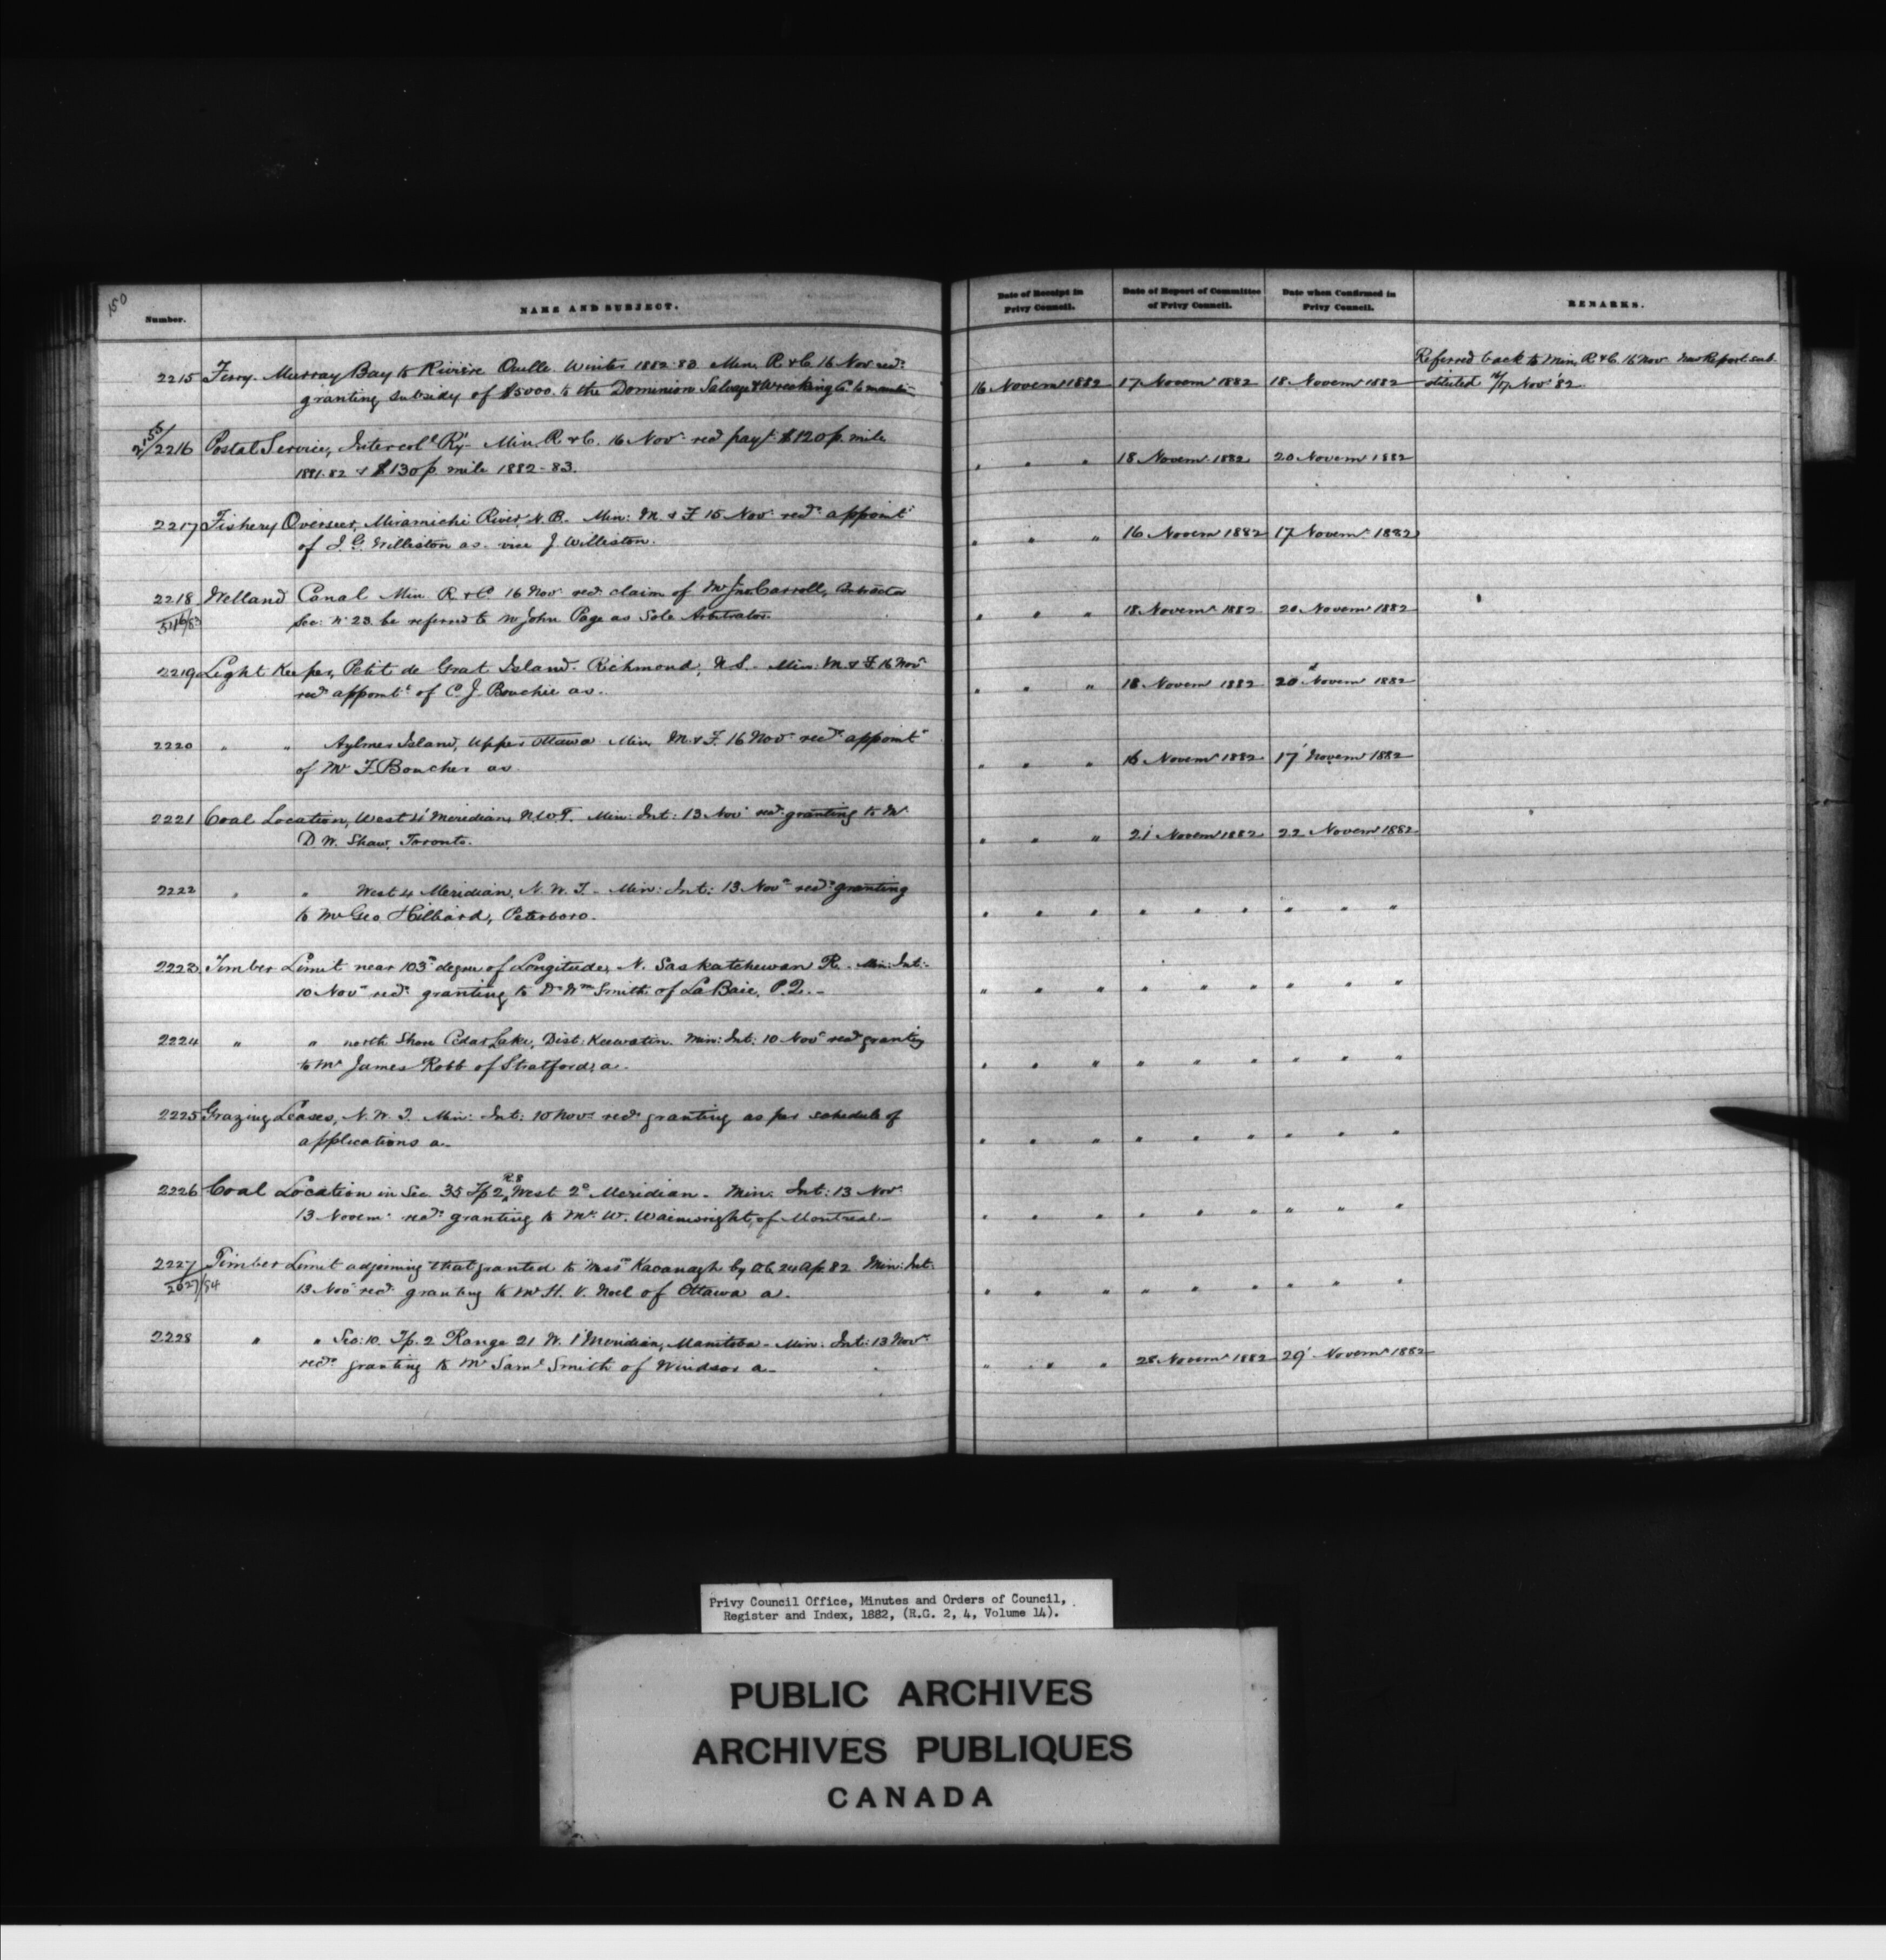 150
Number.
NAME AND SUBJECT.
Date of Receipt in Privy Council.
Date of Report of Committee of Privy Council.
Date when Confirmed in Privy Council.
REMARKS.
2215 Ferry. Murray Bay to Rivière Ouelle. Winter 1882-83 Min. R & C 16 Nov recd
granting subsidy of $5000. to the Dominion Salvage & Wrecking Co. to 16 Novem 1882 17 Novem 1882 18 Novem 1882
Referred back to Min. R & C. 16 Nov New Report sub-
stituted 16/17 Nov '82
2155/2216 Postal Service, Intercoll Ry. Min. R & C. 16 Nov. recd payt $120 p. mile
1881-82 & $130 p. mile 1882-83. " " " 18 Novem. 1882 20 Novem 1882
2217 Fishery Overseer, Miramichi River N.B. Min: M. & F 15 Nov. recd appoint
of J. G. Williston as. vice J Williston. " " " 16 Novem 1882 17 Novem 1882
2218 Welland Canal Min. R & C 16 Nov recd claim of Mr Jno. Carroll, Contractor
Sec: No 23 be referred to Mr John Page as Sole Arbitrator. " " " 18 Novem 1882 20 Novem 1882
2219 Light Keeper, Petit de Grat Island. Richmond, N.S. Min: M. & F. 16 Nov
recd appointt of C. J. Bouchie as. " " " 18 Novem 1882 20 Novem 1882
2220 " " Aylmer Island, Upper Ottawa Min. M. & F. 16 Nov. recd appoint
of Mr F. Boucher as. " " " 16 Novem 1882 17 Novem 1882
2221 Coal Location, West 4 Meridian, N.W.T. Min: Int: 13 Nov recd granting to Mr
D. W. Shaw, Toronto. " " " 21 Novem 1882 22 Novem 1882
2222 " " West 4 Meridian, N. W. T. Min: Int: 13 Nov recd granting
to Mr Geo. Hilliard, Peterboro. " " " " " " " " "
2223 Timber Limit near 103rd degree of Longitude, N. Saskatchewan R. Min: Int:
10 Nov recd granting to Dr Wm Smith of La Baie, P.Q. " " " " " " " " "
2224 " " north Shore Cedar Lake, Dist: Keewatin. Min: Int: 10 Nov recd granting
to Mr James Robb of Stratford a. " " " " " " " " "
2225 Grazing Leases, N. W. T. Min: Int: 10 Nov recd granting as per schedule of
applications a. " " " " " " " " "
2226 Coal Location in Sec. 35 Tp 2, R. 8 West 2 Meridian. Min. Int: 13 Nov.
13 Novem. recd granting to Mr. W. Wainwright, of Montreal. " " " " " " " " "
2227 Timber Limit adjoining that granted to Mess Kavanagh by O.C. 24 Ap. 82 Min: Int:
2627/84 13 Nov recd granting to Mr H. V. Noel of Ottawa a. " " " " " " " " "
2228 " " Sec: 10. Tp. 2 Range 21 W. 1 Meridian, Manitoba. Min: Int: 13 Nov.
recd granting to Mr Saml Smith of Windsor a. " " " 28 Novem 1882 29 Novem 1882
Privy Council Office, Minutes and Orders of Council,
Register and Index, 1882, (R.G. 2, 4, Volume 14).
PUBLIC ARCHIVES
ARCHIVES PUBLIQUES
CANADA